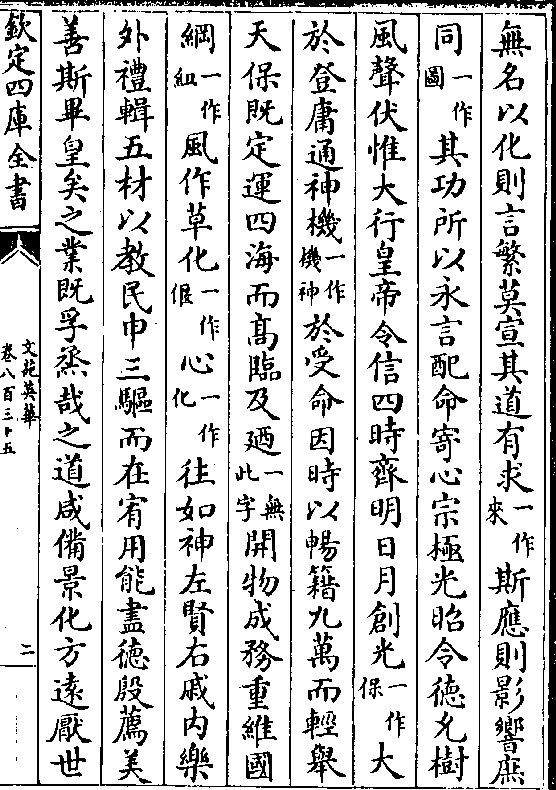 無名以化則言繁莫宣其道有求一作來斯應則影響庶
同一作圖其功所以永言配命寄心宗極光昭令德允樹
風聲伏惟大行皇帝令信四時齊明日月創光一作保大
於登庸通神機一作機神於受命因時以暢籍九萬而輕舉
天保既定運四海而高臨及廼一無此字開物成務重維國
綱一作組風作草化一作偃心一作化往如神左賢右戚内樂
外禮輯五材以教民申三驅而在宥用能盡徳殷薦美
善斯畢皇矣之業既孚烝哉之道咸備景化方逺厭世
欽定四庫全書
文苑英華
卷八百三十五
二